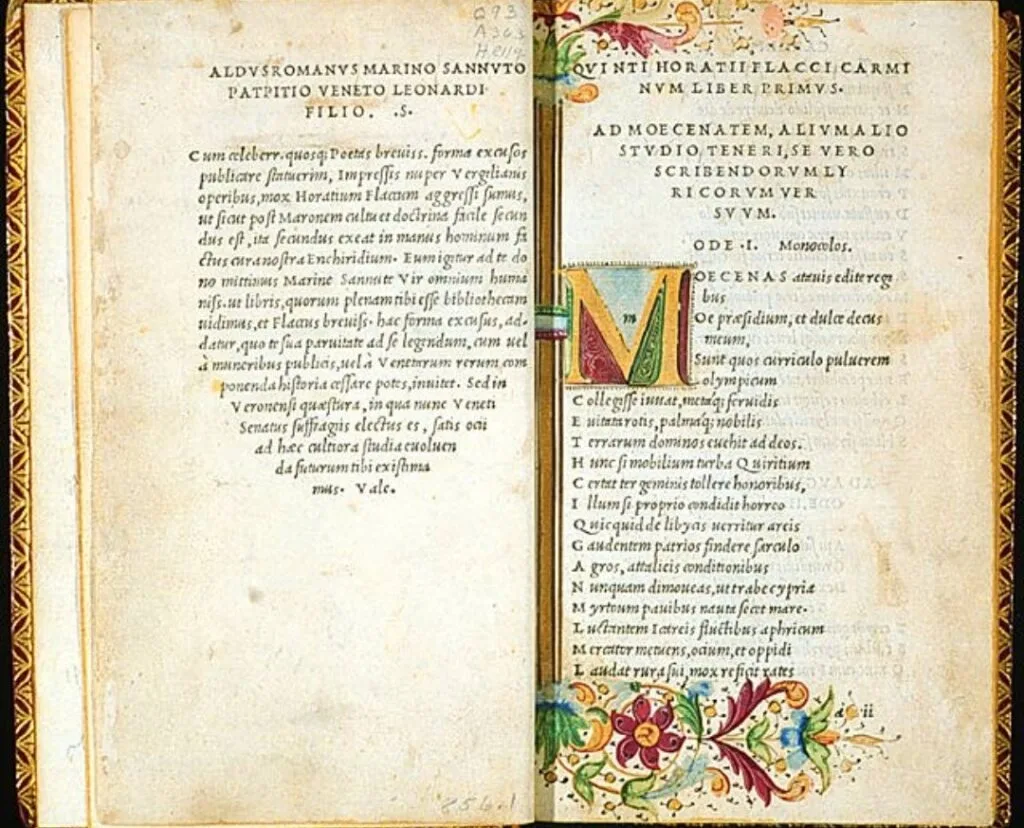 ALDVS ROMANVS MARINO SANNVTO
PATRITIO VENETO LEONARDI
FILIO. .S.
Cum celeberr. quosq; Poetas breuiss. forma excusos
publicare statuerim, Impressis nuper Vergilianis
operibus, mox Horatium Flaccum aggressi sumus,
ut sicut post Maronem cultu et doctrina facile secun
dus est, ita secundus exeat in manus hominum fa
ctus cura nostra Enchiridium. Eum igitur ad te do
no mittimus Marine Sannute Vir omnium huma
niss. ut libris, quorum plenam tibi esse bibliothecam
uidimus, et Flaccus breuiss. hac forma excusus, ad-
datur, quo te sua paruitate ad se legendum, cum uel
à muneribus publicis, uel à Venetarum rerum com
ponenda historia cessare potes, inuitet. Sed in
Veronensi quæstura, in qua nunc Veneti
Senatus suffragiis electus es, satis ocii
ad hæc cultiora studia euoluen
da futurum tibi existima
mus. Vale.
856.1
QVINTI HORATII FLACCI CARMI
NVM LIBER PRIMVS.
AD MOECENATEM, ALIVM ALIO
STVDIO TENERI, SE VERO
SCRIBENDORVM LY
RICORVM VER
SVVM.
ODE .I. Monocolos.
MOECENAS atauis edite reg
bus
Oe præsidium, et dulce decus
meum,
Sunt quos curriculo puluerem
olympicum
Collegisse iuuat, metaq; feruidis
Euitata rotis, palmaq; nobilis
Terrarum dominos euehit ad deos.
Hunc si mobilium turba Quiritium
Certat tergeminis tollere honoribus,
Illum si proprio condidit horreo
Quicquid de libycis uerritur areis
Gaudentem patrios findere sarculo
Agros, attalicis conditionibus
Nunquam dimoueas, ut trabe cypria
Myrtoum pauibus nauta secet mare.
Luctantem Icareis fluctibus aphricum
Mercator metuens, ocium, et oppidi
Laudat rura sui, mox reficit rates
a ii